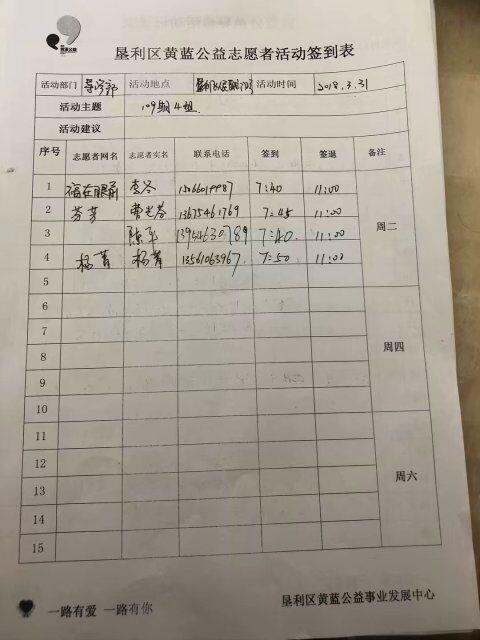 黄蓝公益
垦利区黄蓝公益志愿者活动签到表
活动部门 导医部 活动地点 活动时间 2018.3.31
活动主题 109期4组
活动建议
序号 志愿者网名 志愿者实名 联系电话 签到 签退 备注
1 福在眼前 李冬 7:40 11:00
2 芬芳 曹光芬 13675461769 7:45 11:00
周二
3 陈平 13954630789 7:40 11:00
4 杨菁 杨菁 13561063967 7:50 11:00
5
6
7
周四
8
9
10
11
12
13
周六
14
15
一路有爱 一路有你
垦利区黄蓝公益事业发展中心